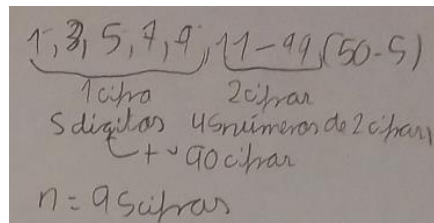 1, 3, 5, 7, 9, 11-99, (50-5)
1 cifra 2 cifras
5 dígitos 45 números de 2 cifras
+ 90 cifras
n = 95 cifras